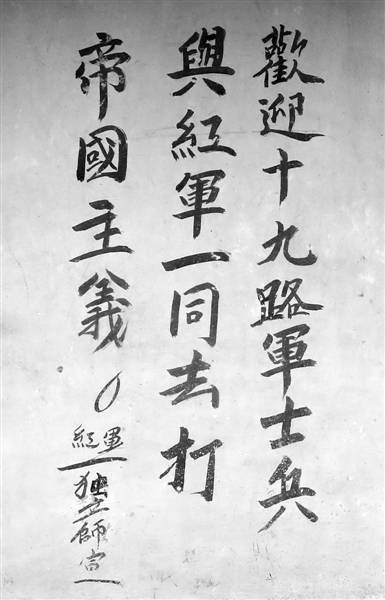 歡迎十九路軍士兵
與紅軍一同去打
帝國主義。
紅軍獨立師宣